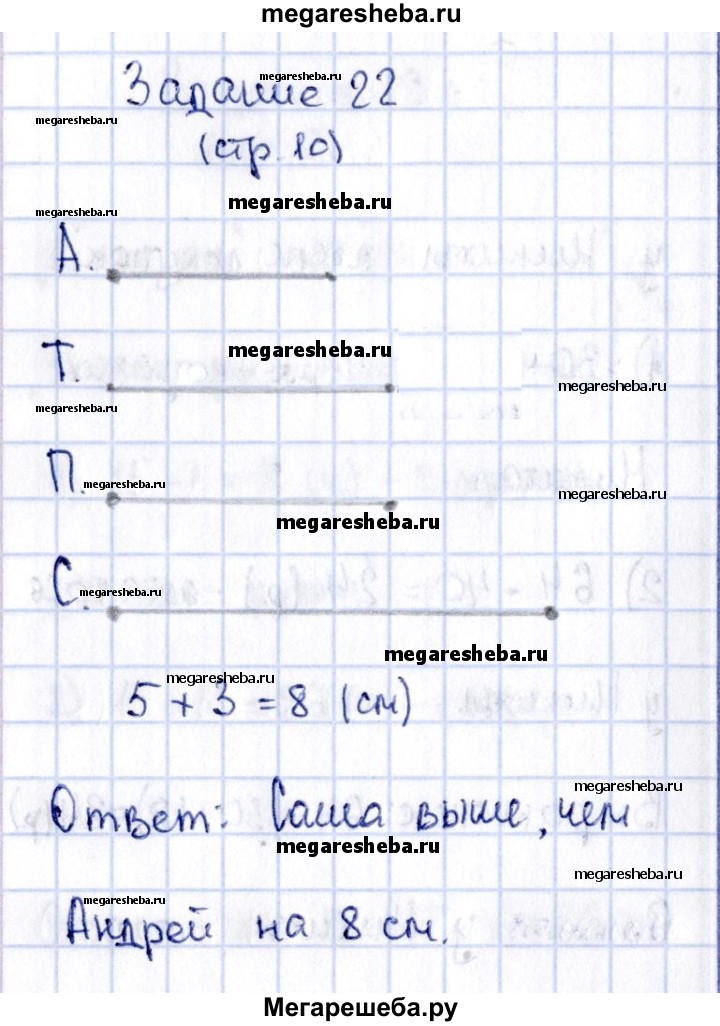 megaresheba.ru
Задание 22
megaresheba.ru
megaresheba.ru
(стр. 10)
megaresheba.ru
megaresheba.ru
А.
megaresheba.ru
Т.
megaresheba.ru
megaresheba.ru
П.
megaresheba.ru
megaresheba.ru
megaresheba.ru
С.
megaresheba.ru
megaresheba.ru
megaresheba.ru
5 + 3 = 8 (см)
megaresheba.ru
Ответ: Саша выше, чем
megaresheba.ru
megaresheba.ru
megaresheba.ru
Андрей на 8 см.
Мегарешеба.ру